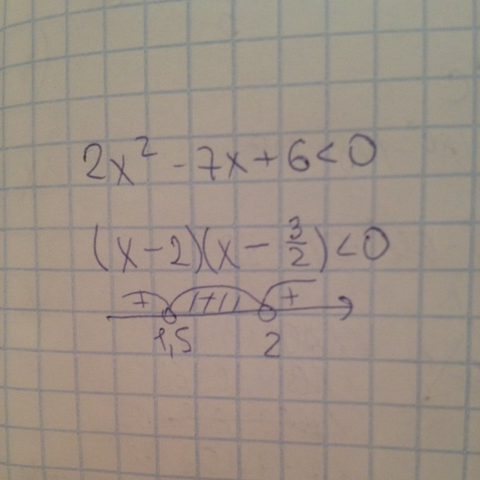 2x² - 7x + 6 < 0
(x - 2)(x - 3/2) < 0
+ +
1,5 2